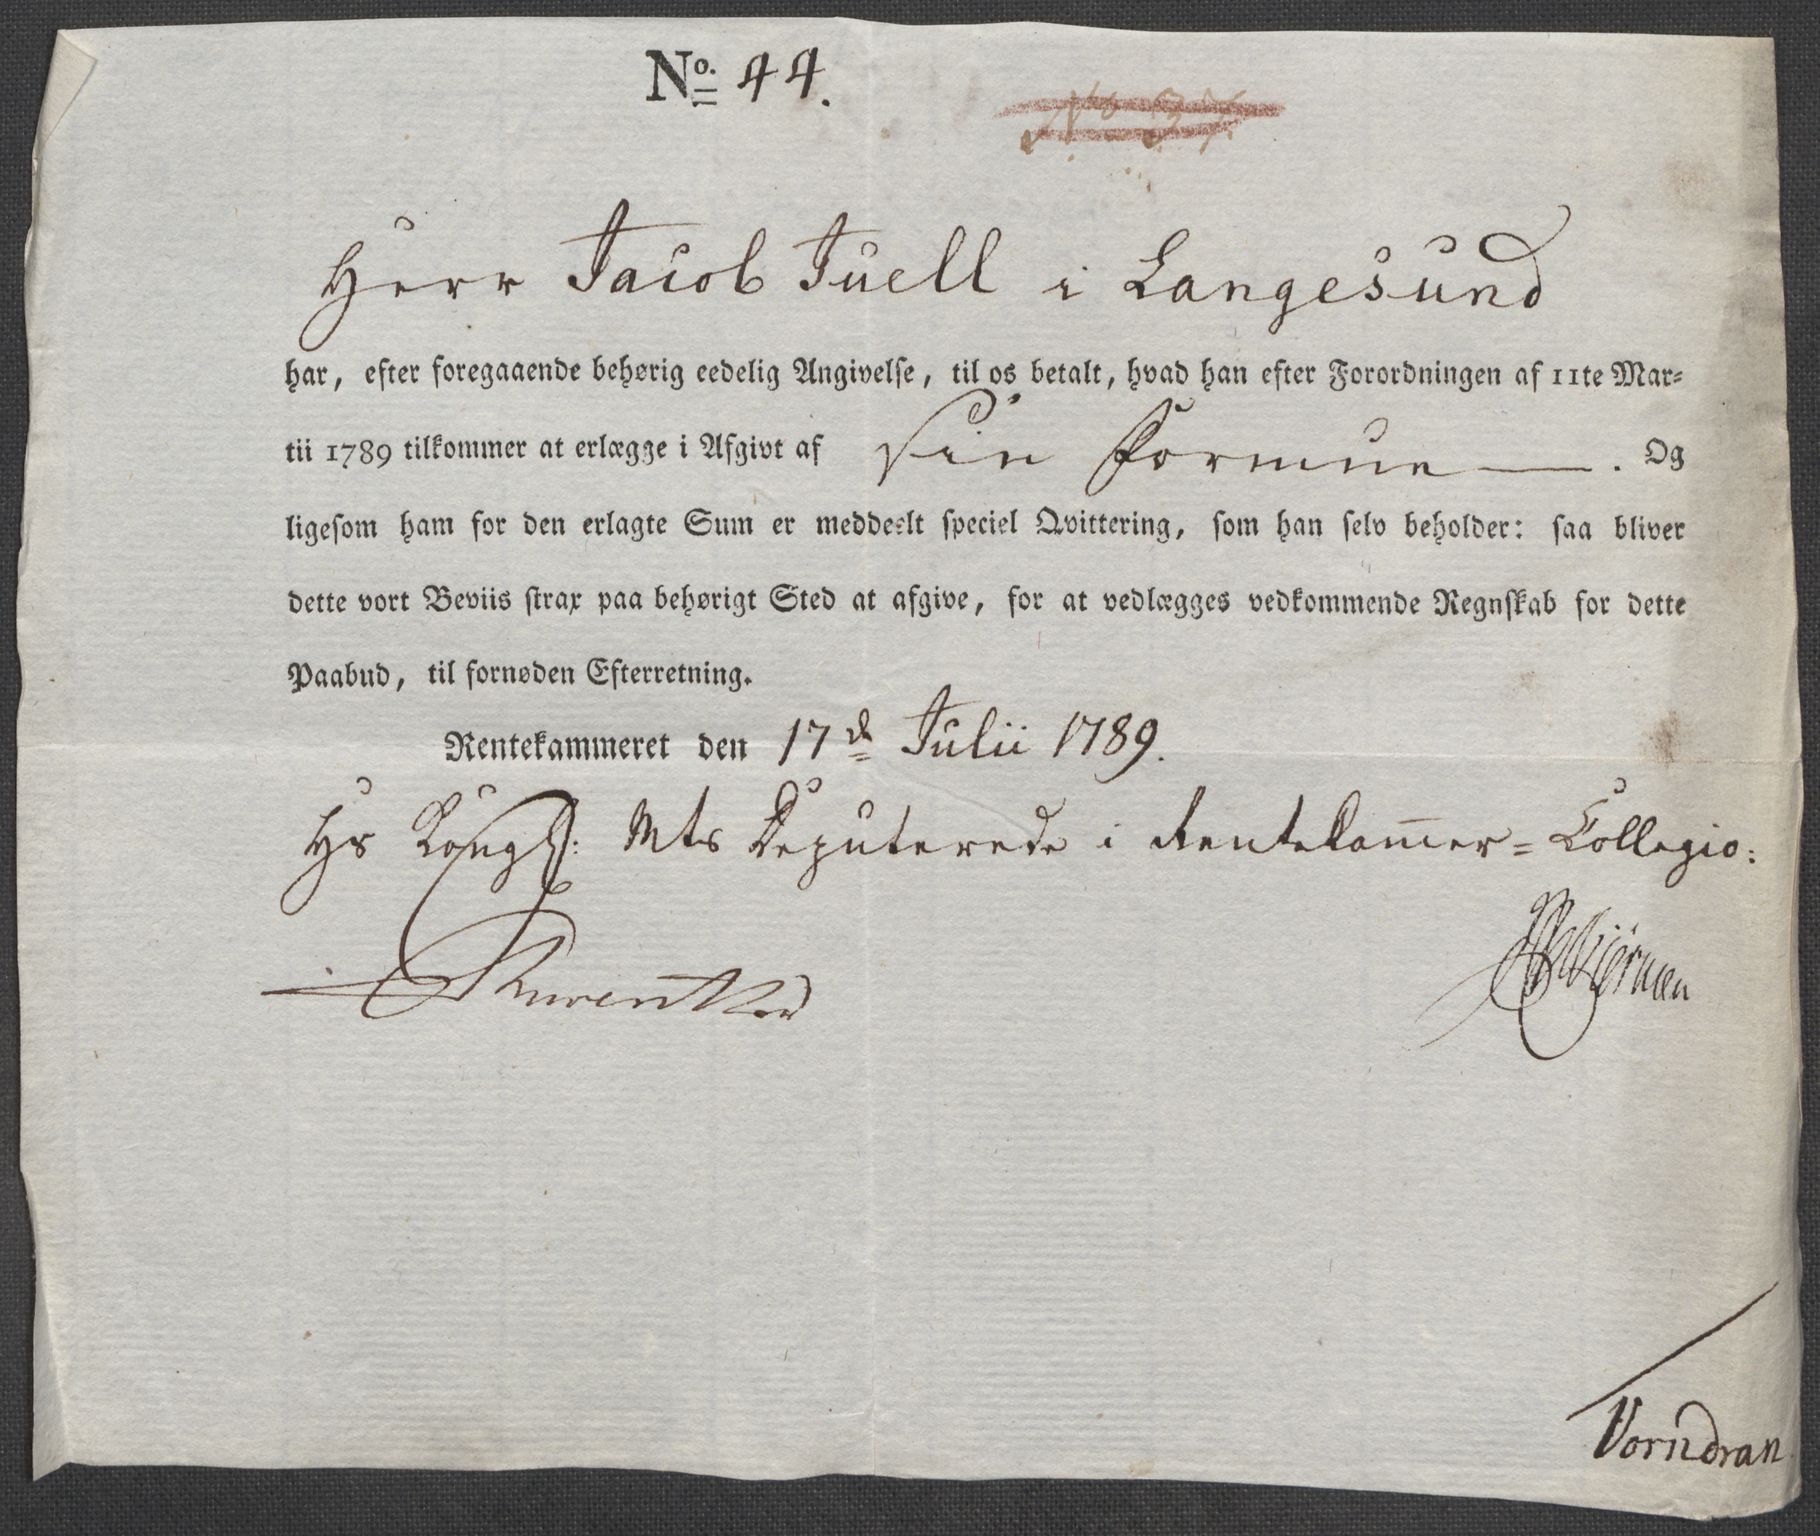 No. 44.
No 37.
Herr Jacob Juell i Langesund
har, efter foregaaende behørig eedelig Angivelse, til os betalt, hvad han efter Forordningen af 11te Mar-
tii 1789 tilkommer at erlægge i Afgivt af sin Formue. Og
ligesom ham for den erlagte Sum er meddeelt speciel Qvittering, som han selv beholder: saa bliver
dette vort Beviis strax paa behørigt Sted at afgive, for at vedlægges vedkommende Regnskab for dette
Paabud, til fornøden Efterretning.
Rentekammeret den 17de Julii 1789.
Hs Kongl: Mts Deputerede i Rentekammer-Collegio:
Vorndran